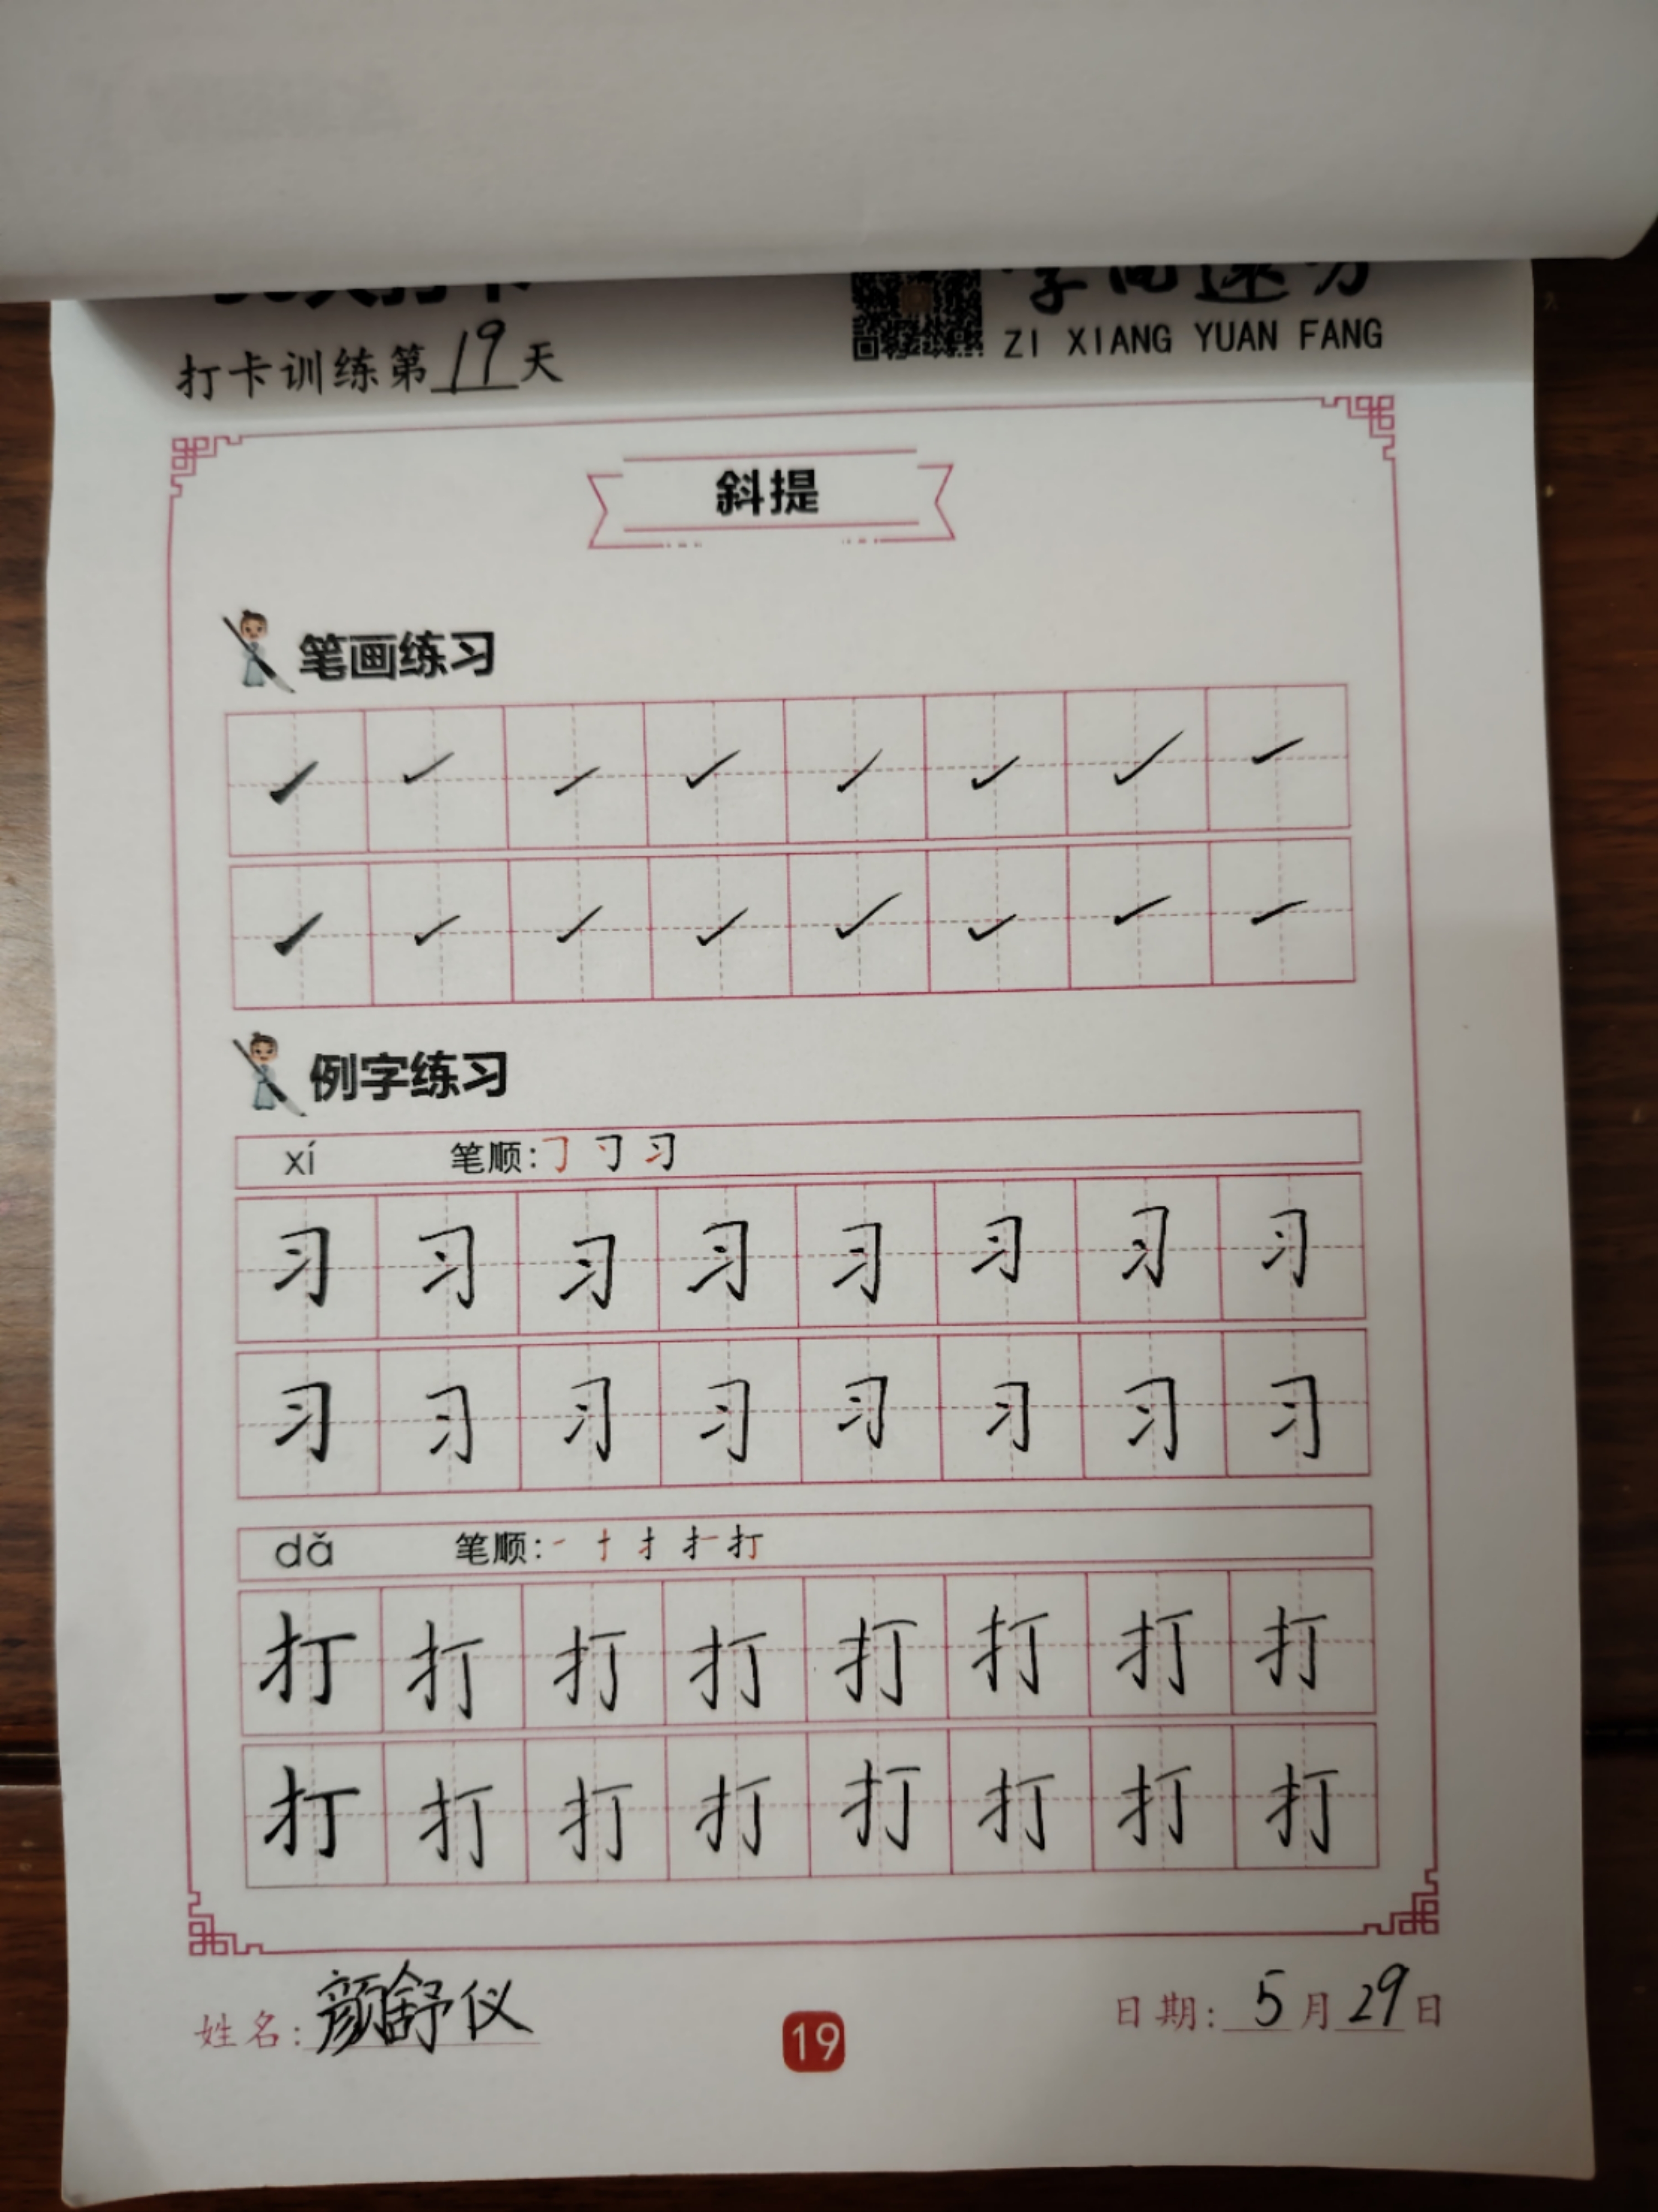 打卡训练第19天
ZI XIANG YUAN FANG
斜提
笔画练习
例字练习
xí 笔顺:㇆ 习 习
习 习 习 习 习 习 习 习
习 习 习 习 习 习 习 习
dǎ 笔顺:一 十 扌 扌一 打
打 打 打 打 打 打 打 打
打 打 打 打 打 打 打 打
姓名:颜舒仪
19
日期:5月29日